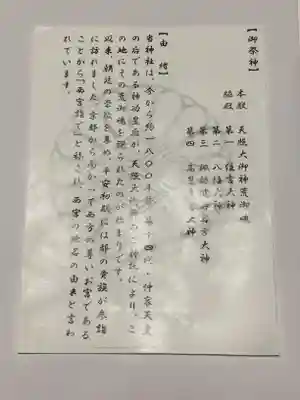 【御祭神】
本殿 天照大御神荒御魂
脇殿 第一 住吉大神
第二 八幡大神
第三 諏訪建御名方大神
第四 高皇産霊大神
【由 緒】
当神社は、今から約一八〇〇年前、第十四代・仲哀天皇
の后である神功皇后が、天照大御神のご神託により、こ
の地にその荒御魂を祀られたのが始まりです。
以来、朝廷の崇敬を集め、平安初期には都の貴族が参詣
に訪れました。京都から向かって西方の尊いお宮である
ことから「西宮詣で」と称され、西宮の地名の由来と言わ
れています。